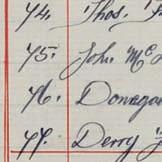 74. Thos.
75. John Mc
76. Donegan
77. Derry